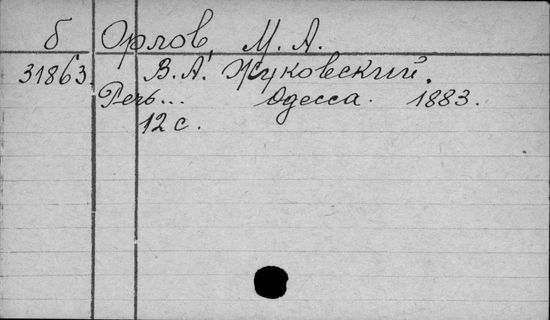 б Орлов, М. А.
31863 В. А. Жуковский.
Речь... Одесса. 1883.
12 с.